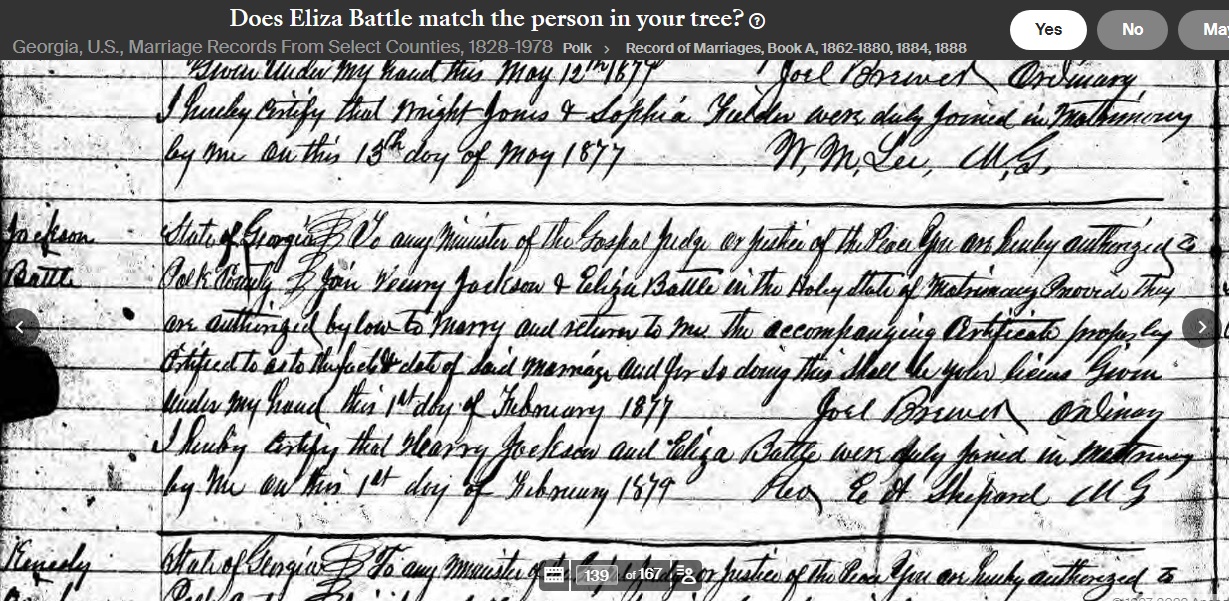 Does Eliza Battle match the person in your tree?
Yes
No
May
Georgia, U.S., Marriage Records From Select Counties, 1828-1978 Polk > Record of Marriages, Book A, 1862-1880, 1884, 1888
Given under my hand this May 12th 1877 Joel Brewer Ordinary
I hereby certify that Wright Jones & Sophia were duly joined in Matrimony
by me on this 13th day of May 1877 W, M, Lee, M, G,
Jackson
Battle
State of Georgia To any Minister of the Gospel Judge or Justice of the Peace You are hereby authorized to
Polk County Join Henry Jackson & Eliza Battle in the Holey state of Matrimony Provided they
are authorized by low to Marry and return to me the accompanying Certificate properley
Certified to as to the fact & date of said marriage and for so doing this shall be your Given
under my hand this 1st day of February 1877 Joel Brewer Ordinary
I hereby certify that Hearry Jackson and Eliza Battle were duly joined in
by me on this 1st day of February 1879 Rev E H Shepard M G
State of Georgia To any Minister of or Justice of the Peace You are hereby authorized to
139 of 167